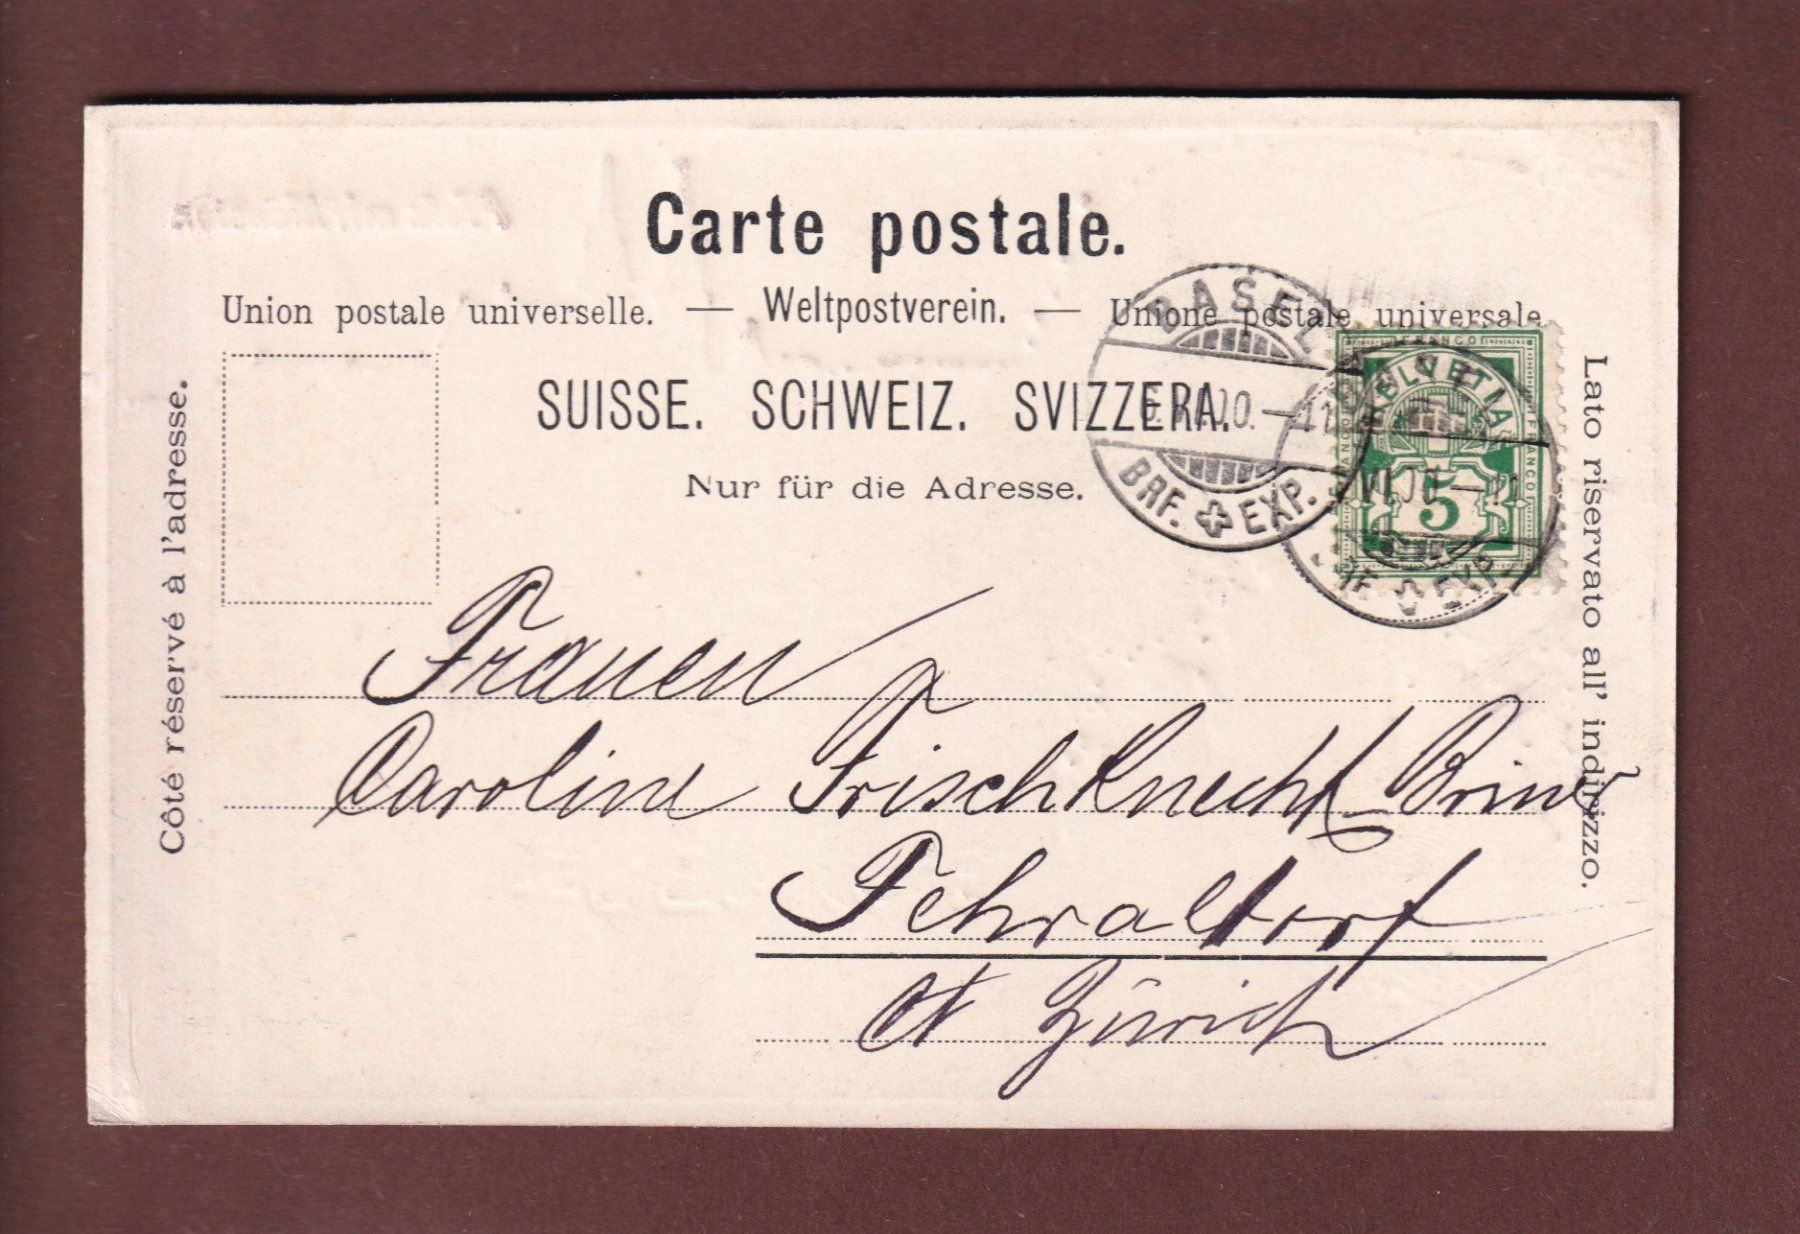 Carte postale.
Union postale universelle. — Weltpostverein. — Unione postale universale
SUISSE. SCHWEIZ. SVIZZERA.
Nur für die Adresse.
Côté réservé à l'adresse.
Lato riservato all' indirizzo.
BASEL
BRF. EXP.
FRANCO
HELVETIA
FRANCO
FRANCO
5
EXP.
Frauen
Caroline Frischknecht-Briner
Fehraltorf
Kt Zürich